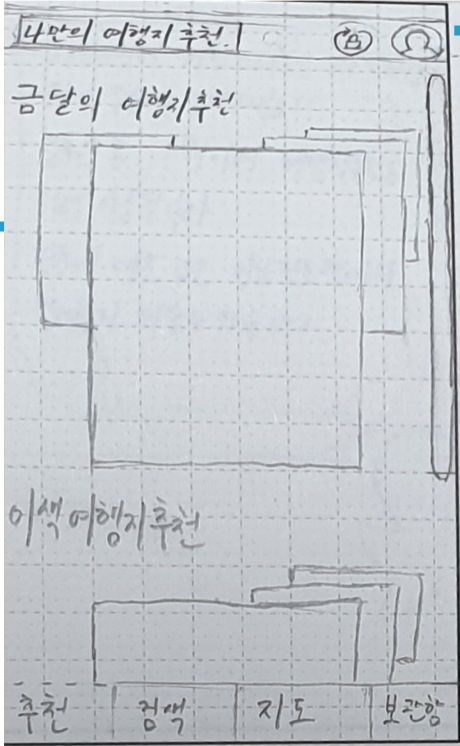 나만의 여행지 추천.
금달의 여행지 추천
이색여행지추천
추천 검색 지도 보관함